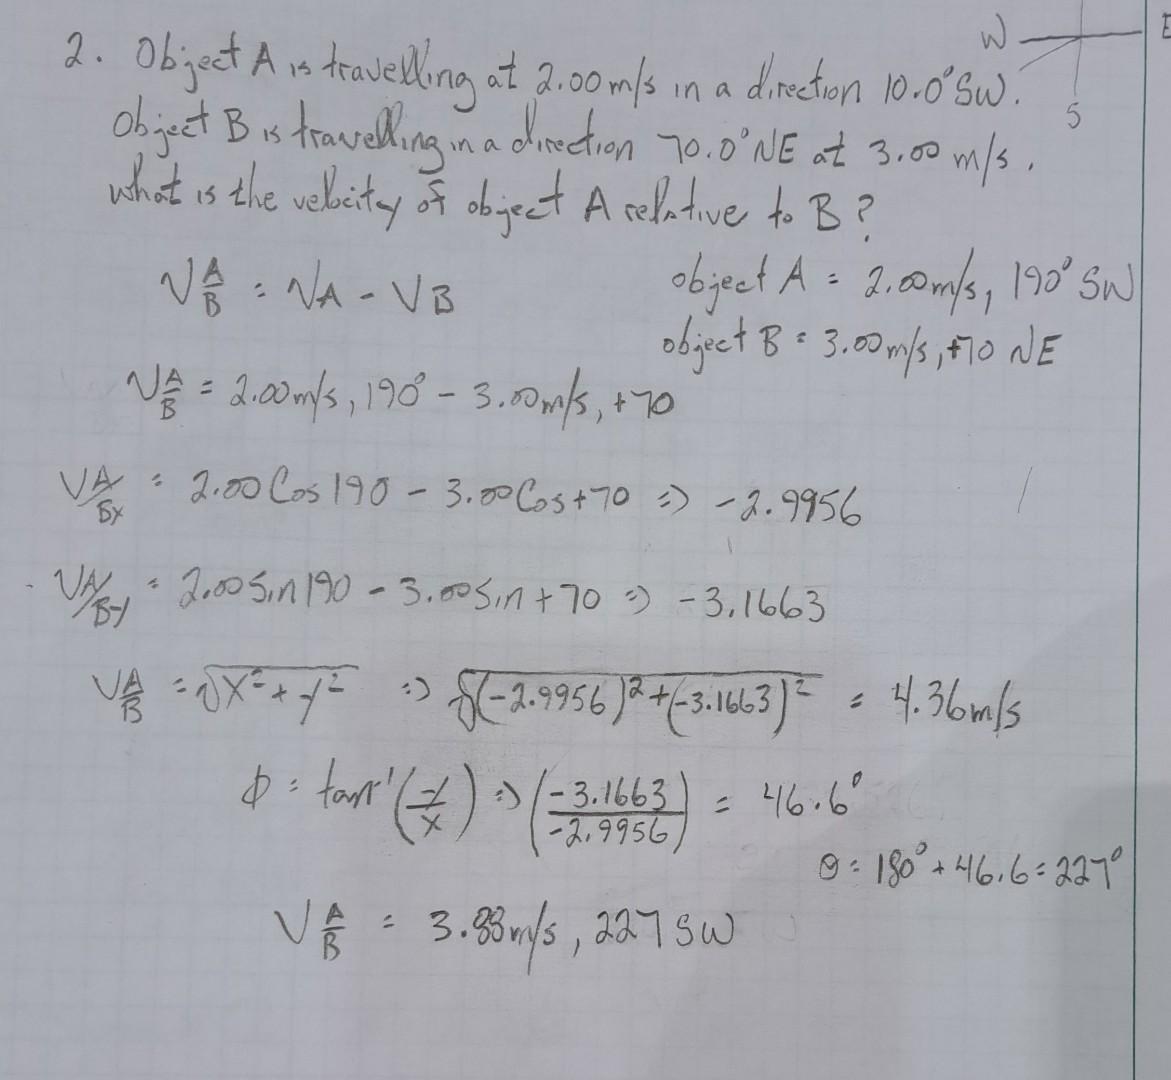 W E
S
2. Object A is travelling at 2.00 m/s in a direction 10.0° SW.
Object B is travelling in a direction 70.0° NE at 3.00 m/s.
What is the velocity of object A relative to B?
V A/B = VA - VB
object A = 2.00m/s, 190° SW
object B = 3.00m/s, +70 NE
V A/B = 2.00m/s, 190° - 3.00m/s, +70
V A/Bx = 2.00 Cos 190 - 3.00 Cos +70 => -2.9956
V A/By = 2.00 Sin 190 - 3.00 Sin +70 => -3.1663
V A/B = √x² + y² => √(-2.9956)² + (-3.1663)² = 4.36m/s
Φ = tan⁻¹(y/x) => (-3.1663/-2.9956) = 46.6°
θ = 180° + 46.6 = 227°
V A/B = 3.88m/s, 227 SW